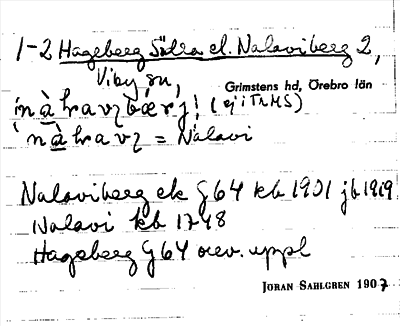 1-2 Hageberg Södra el. Nalaviberg 2,
Viby sn,
Grimstens hd, Örebro län
nàlravz bærj! (ej i TrMS)
nàlravz = Nalavi
Nalaviberg ek G64 kb 1901 jb 1919
Nalavi kb 1748
Hageberg G64 orev. uppl
JÖRAN SAHLGREN 1907